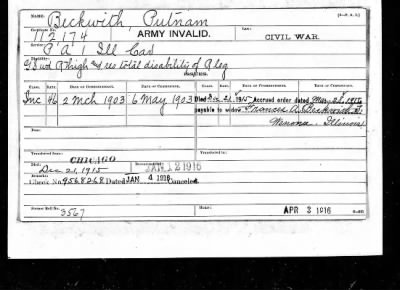 NAME: Beckwith, Putnam
Certificate No. 112174 ARMY INVALID. Law: CIVIL WAR.
Service: P A 1 Ill Cav
G S wd R thigh and res total disability of R leg
CLASS. RATE. DATE OF COMMENCEMENT. DATE OF CERTIFICATE. CLASS. RATE. DATE OF COMMENCEMENT. DATE OF CERTIFICATE.
Inc 46 2 Mch 1903 6 May 1903 Dec 21, 1915 Accrued order dated Mar 28, 1916
payable to widow Frances A. Beckwith
Wenona, Illinois
Transferred from
CHICAGO
Died: Dec 21, 1915 JAN 12 1916
Remarks:
Check No. 9568268 Dated JAN 4 1916 Canceled.
Former Roll No. 3567 Home: APR 3 1916